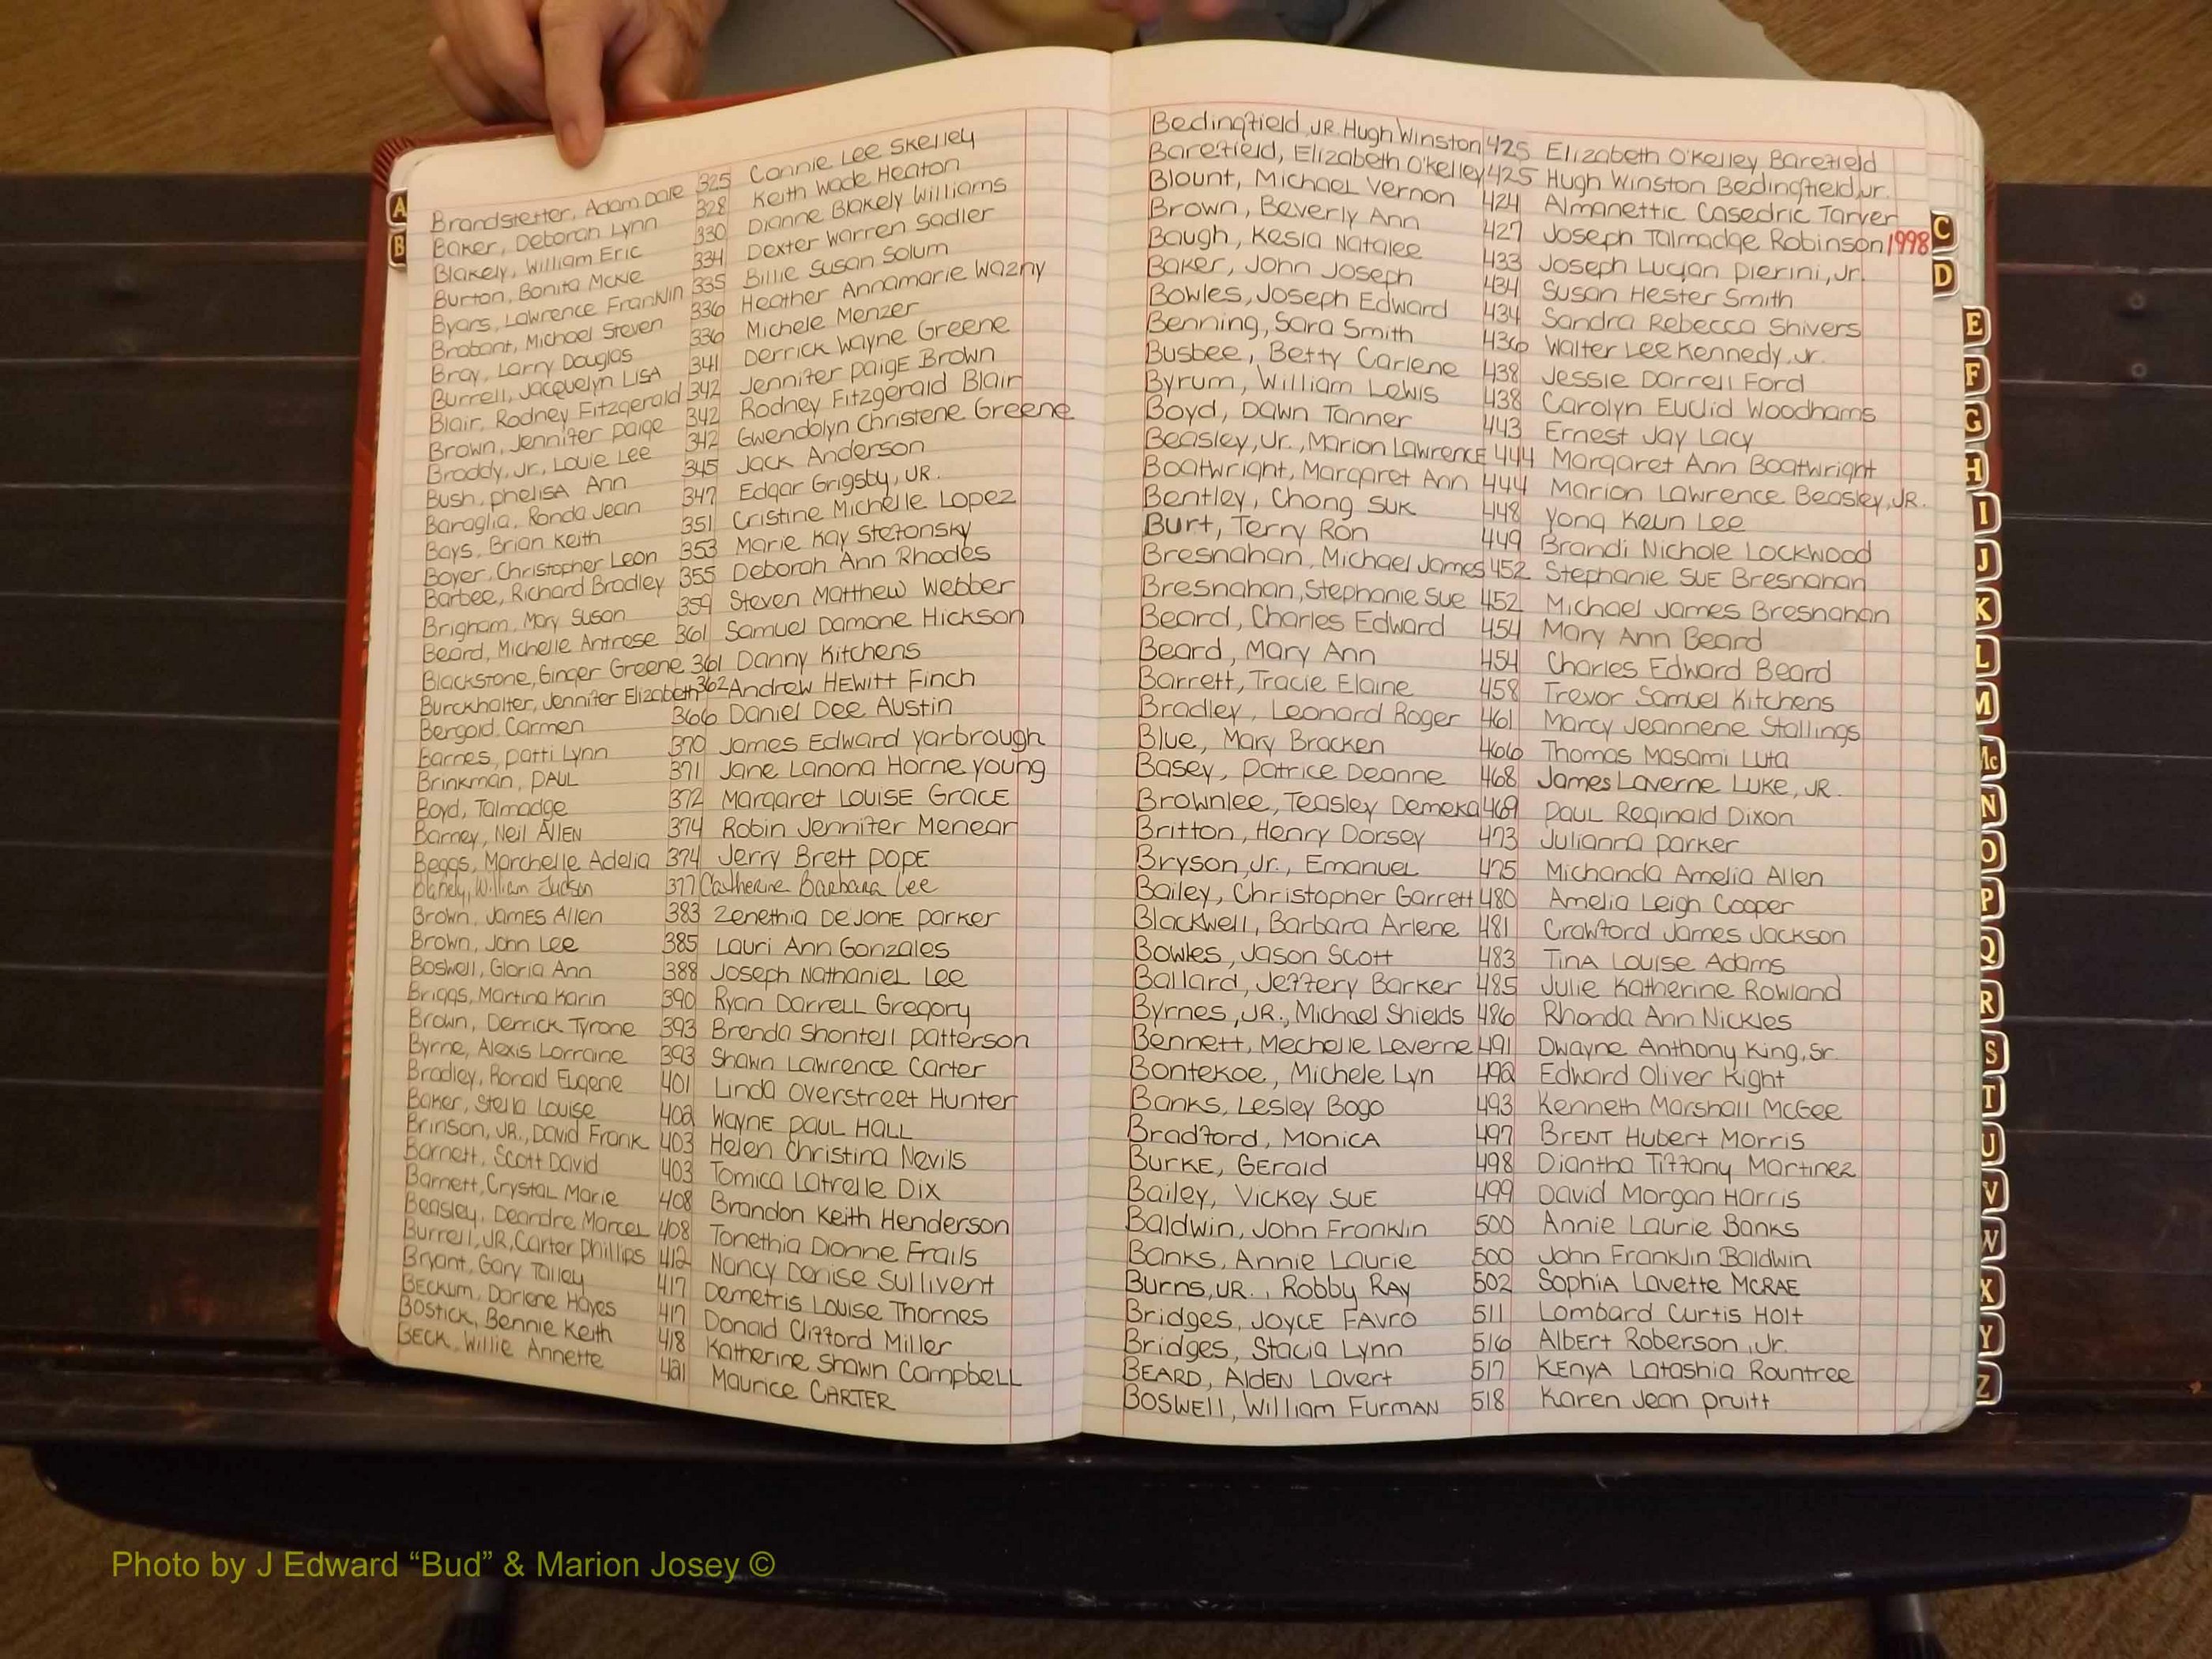 Brandstetter, Adam Dale 325 Connie Lee Skelley
Baker, Deborah Lynn 328 Keith Wade Heaton
Blakely, William Eric 330 Dianne Blakely Williams
Burton, Bonita McKie 334 Dexter Warren Sadler
Byars, Lawrence Franklin 335 Billie Susan Solum
Brabant, Michael Steven 336 Heather Annamarie Wazny
Bray, Larry Douglas 336 Michele Menzer
Burrell, Jacquelyn LISA 341 Derrick Wayne Greene
Blair, Rodney Fitzgerald 342 Jennifer Paige Brown
Brown, Jennifer Paige 342 Rodney Fitzgerald Blair
Broddy, Jr., Louie Lee 342 Gwendolyn Christene Greene
Bush, Phelisa Ann 345 Jack Anderson
Baraglia, Ronda Jean 347 Edgar Grigsby, JR.
Bays, Brian Keith 351 Cristine Michelle Lopez
Boyer, Christopher Leon 353 Marie Kay Stefonsky
Barbee, Richard Bradley 355 Deborah Ann Rhodes
Brigham, Mary Susan 359 Steven Matthew Webber
Beard, Michelle Antrese 361 Samuel Damone Hickson
Blackstone, Ginger Greene 361 Danny Kitchens
Burckhalter, Jennifer Elizabeth 362 Andrew Hewitt Finch
Bergold, Carmen 366 Daniel Dee Austin
Barnes, Patti Lynn 370 James Edward Yarbrough
Brinkman, PAUL 371 Jane Lanona Horne Young
Boyd, Talmadge 372 Margaret LOUISE GRACE
Barney, Neil Allen 374 Robin Jennifer Menear
Beggs, Marchelle Adelia 374 Jerry Brett POPE
Blakely, William Judson 377 Catherine Barbara Lee
Brown, James Allen 383 Zenethia DeJONE Parker
Brown, John Lee 385 Lauri Ann Gonzales
Boswell, Gloria Ann 388 Joseph Nathaniel Lee
Briggs, Martina Karin 390 Ryan Darrell Gregory
Brown, Derrick Tyrone 393 Brenda Shontell Patterson
Byrne, Alexis Lorraine 393 Shawn Lawrence Carter
Bradley, Ronald Eugene 401 Linda Overstreet Hunter
Baker, Stella Louise 402 WAYNE PAUL HALL
Brinson, JR., David Frank 403 Helen Christina Nevils
Barnett, Scott David 403 Tomica Latrelle Dix
Barnett, Crystal Marie 408 Brandon Keith Henderson
Beasley, Deandre Marcel 408 Tonethia Dionne Frails
Burrell, JR, Carter Phillips 412 Nancy Denise Sullivent
Bryant, Gary Talley 417 Demetris Louise Thornes
BECKUM, Darlene Hayes 417 Donald Clifford Miller
Bostick, Bennie Keith 418 Katherine Shawn Campbell
BECK, Willie Annette 421 Maurice CARTER
Bedingfield, JR. Hugh Winston 425 Elizabeth O'Kelley Barefield
Barefield, Elizabeth O'Kelley 425 Hugh Winston Bedingfield, Jr.
Blount, Michael Vernon 424 Almanettic Casedric Tarver
Brown, Beverly Ann 427 Joseph Talmadge Robinson 1998
Baugh, Kesia Natalee 433 Joseph Lucian Pierini, Jr.
Baker, John Joseph 434 Susan Hester Smith
Bowles, Joseph Edward 434 Sandra Rebecca Shivers
Benning, Sara Smith 436 Walter Lee Kennedy, Jr.
Busbee, Betty Carlene 438 Jessie Darrell Ford
Byrum, William Lewis 438 Carolyn Euclid Woodhams
Boyd, Dawn Tanner 443 Ernest Jay Lacy
Beasley, Jr., Marion Lawrence 444 Margaret Ann Boatwright
Boatwright, Margaret Ann 444 Marion Lawrence Beasley, JR.
Bentley, Chong Suk 448 Yong Keun Lee
Burt, Terry Ron 449 Brandi Nichole Lockwood
Bresnahan, Michael James 452 Stephanie SUE Bresnahan
Bresnahan, Stephanie Sue 452 Michael James Bresnahan
Beard, Charles Edward 454 Mary Ann Beard
Beard, Mary Ann 454 Charles Edward Beard
Barrett, Tracie Elaine 458 Trevor Samuel Kitchens
Bradley, Leonard Roger 461 Marcy Jeannene Stallings
Blue, Mary Bracken 466 Thomas Masami Luta
Basey, Patrice Deanne 468 James Laverne LUKE, JR.
Brownlee, Teasley Demeka 469 PAUL Reginald Dixon
Britton, Henry Dorsey 473 Julianna Parker
Bryson, Jr., Emanuel 475 Michanda Amelia Allen
Bailey, Christopher Garrett 480 Amelia Leigh Cooper
Blackwell, Barbara Arlene 481 Crawford James Jackson
Bowles, Jason Scott 483 TINA LOUISE Adams
Ballard, Jeffery Barker 485 Julie Katherine Rowland
Byrnes, JR., Michael Shields 486 Rhonda Ann Nickles
Bennett, Mechelle Leverne 491 Dwayne Anthony King, Sr.
Bontekoe, Michele Lyn 492 Edward Oliver Kight
Banks, Lesley Bogo 493 Kenneth Marshall McGee
Bradford, MONICA 497 BRENT Hubert Morris
BURKE, GErald 498 Diantha Tiffany Martinez
Bailey, Vickey SUE 499 David Morgan Harris
Baldwin, John Franklin 500 Annie Laurie Banks
Banks, Annie Laurie 500 John Franklin Baldwin
Burns, JR., Robby RAY 502 SOPHIA Lavette MCRAE
Bridges, JOYCE FAVRO 511 Lombard Curtis Holt
Bridges, Stacia Lynn 516 Albert Roberson, Jr.
BEARD, AlDEN Lavert 517 KENYA Latashia Rountree
BOSWEll, William FURMAN 518 Karen Jean Pruitt
A
B
C
D
E
F
G
H
I
J
K
L
M
Mc
N
O
P
Q
R
S
T
U
V
W
X
Y
Z
Photo by J Edward “Bud” & Marion Josey ©